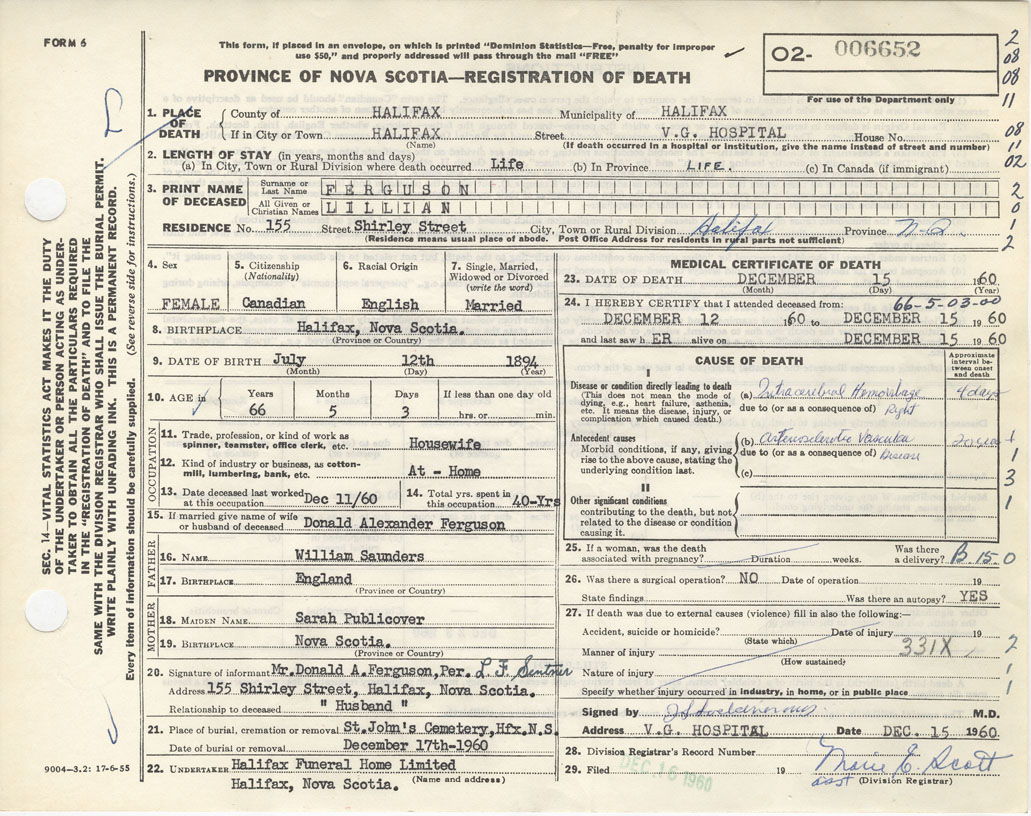 FORM 6
This form, if placed in an envelope, on which is printed "Dominion Statistics—Free, penalty for improper
use $50," and properly addressed will pass through the mail "FREE"
PROVINCE OF NOVA SCOTIA—REGISTRATION OF DEATH
02- 006652
For use of the Department only
2
08
08
11
08
11
02
2
0
1
2
1. PLACE OF DEATH
County of HALIFAX Municipality of HALIFAX
If in City or Town HALIFAX Street V.G. HOSPITAL House No.
(Name) (If death occurred in a hospital or institution, give the name instead of street and number)
2. LENGTH OF STAY (in years, months and days)
(a) In City, Town or Rural Division where death occurred Life (b) In Province LIFE. (c) In Canada (if immigrant)
3. PRINT NAME OF DECEASED
Surname or Last Name FERGUSON
All Given or Christian Names LILLIAN
RESIDENCE No. 155 Street Shirley Street City, Town or Rural Division Halifax Province N.S.
(Residence means usual place of abode. Post Office Address for residents in rural parts not sufficient)
4. Sex FEMALE
5. Citizenship (Nationality) Canadian
6. Racial Origin English
7. Single, Married, Widowed or Divorced (write the word) Married
8. BIRTHPLACE Halifax, Nova Scotia.
(Province or Country)
9. DATE OF BIRTH July 12th 1894
(Month) (Day) (Year)
10. AGE in Years Months Days If less than one day old
66 5 3 hrs. or min.
OCCUPATION
11. Trade, profession, or kind of work as spinner, teamster, office clerk, etc. Housewife
12. Kind of industry or business, as cotton-mill, lumbering, bank, etc. At - Home
13. Date deceased last worked at this occupation Dec 11/60
14. Total yrs. spent in this occupation 40-Yrs
15. If married give name of wife or husband of deceased Donald Alexander Ferguson
FATHER
16. NAME William Saunders
17. BIRTHPLACE England
(Province or Country)
MOTHER
18. MAIDEN NAME Sarah Publicover
19. BIRTHPLACE Nova Scotia.
(Province or Country)
20. Signature of informant Mr. Donald A.Ferguson, Per. L. F.
Address 155 Shirley Street, Halifax, Nova Scotia.
Relationship to deceased " Husband "
21. Place of burial, cremation or removal St.John's Cemetery,Hfx.N.S.
Date of burial or removal December 17th-1960
22. UNDERTAKER Halifax Funeral Home Limited
(Name and address)
Halifax, Nova Scotia.
MEDICAL CERTIFICATE OF DEATH
23. DATE OF DEATH DECEMBER 15 1960
(Month) (Day) (Year)
24. I HEREBY CERTIFY that I attended deceased from: 66-5-03-00
DECEMBER 12 1960 to DECEMBER 15 1960
and last saw h ER alive on DECEMBER 15 1960
CAUSE OF DEATH
Approximate interval between onset and death
I
Disease or condition directly leading to death
(This does not mean the mode of dying, e.g., heart failure, asthenia, etc. It means the disease, injury, or complication which caused death.)
(a) Intracerebral Hemorrhage 4 days
due to (or as a consequence of) Right
Antecedent causes
Morbid conditions, if any, giving rise to the above cause, stating the underlying condition last.
(b) Arteriosclerotic Vascular
due to (or as a consequence of) Disease
(c)
II
Other significant conditions
contributing to the death, but not related to the disease or condition causing it.
1
3
1
25. If a woman, was the death associated with pregnancy? Duration weeks. Was there a delivery? B.15.0
26. Was there a surgical operation? NO Date of operation 19
State findings Was there an autopsy? YES
27. If death was due to external causes (violence) fill in also the following:—
Accident, suicide or homicide? Date of injury 19
(State which)
Manner of injury 331X 2
(How sustained)
Nature of injury 1
Specify whether injury occurred in industry, in home, or in public place 1
Signed by M.D.
Address V.G. HOSPITAL Date DEC. 15 1960
28. Division Registrar's Record Number
29. Filed DEC 16 1960 19 Marie E. Scott
(Division Registrar)
SEC. 14.—VITAL STATISTICS ACT MAKES IT THE DUTY
OF THE UNDERTAKER OR PERSON ACTING AS UNDER-
TAKER TO OBTAIN ALL THE PARTICULARS REQUIRED
IN THE "REGISTRATION OF DEATH" AND TO FILE THE
SAME WITH THE DIVISION REGISTRAR WHO SHALL ISSUE THE BURIAL PERMIT.
WRITE PLAINLY WITH UNFADING INK. THIS IS A PERMANENT RECORD.
Every item of information should be carefully supplied. (See reverse side for instructions.)
9004—3.2: 17-6-55